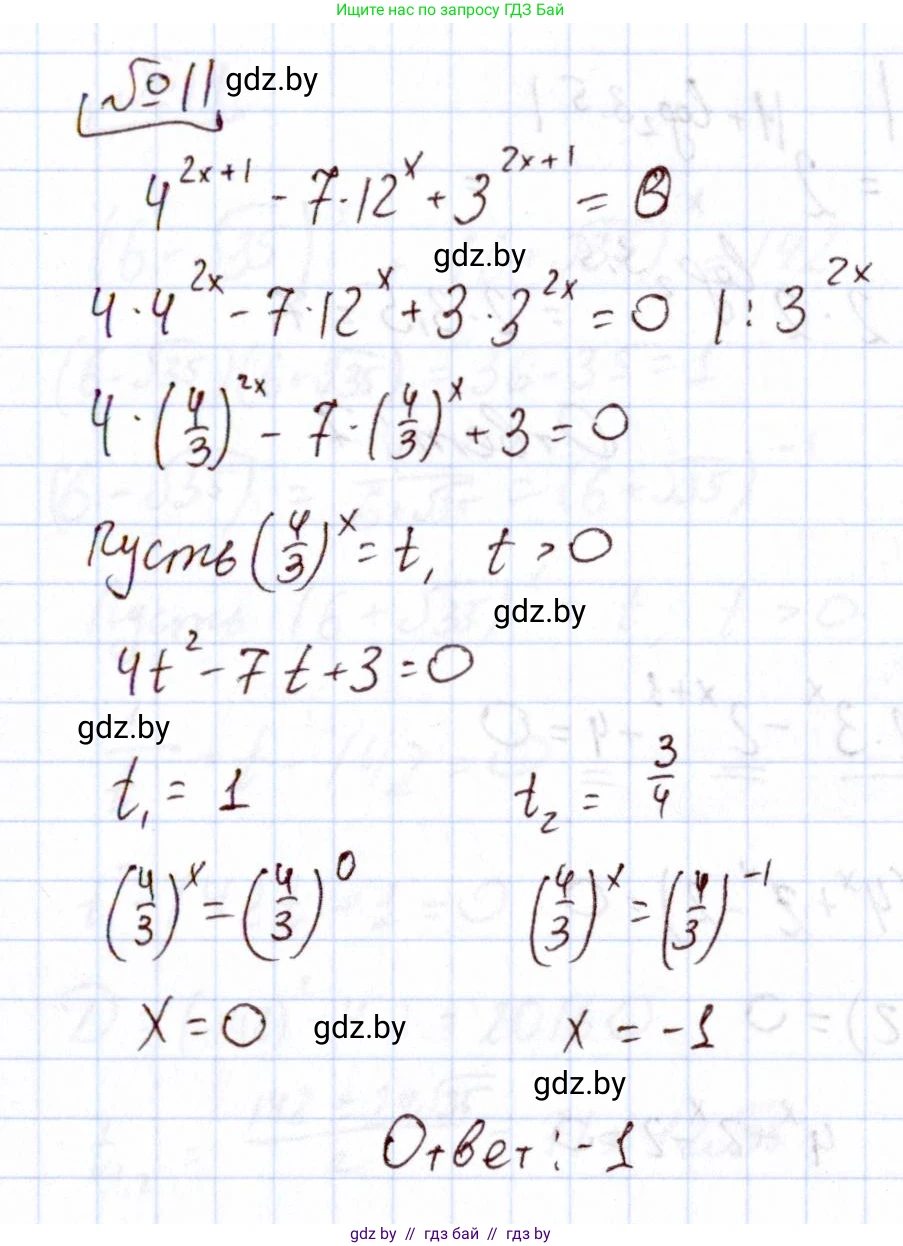 Ищите нас по запросу ГДЗ Бай
№11 gdz.by
4^(2x+1) - 7·12^x + 3^(2x+1) = 0
gdz.by
4·4^(2x) - 7·12^x + 3·3^(2x) = 0 |: 3^(2x)
4·(4/3)^(2x) - 7·(4/3)^x + 3 = 0
Пусть (4/3)^x = t, t > 0
gdz.by
4t² - 7t + 3 = 0
gdz.by
t₁ = 1 t₂ = 3/4
(4/3)^x = (4/3)^0 (4/3)^x = (4/3)^(-1)
x = 0 gdz.by x = -1
gdz.by
Ответ: -1
gdz by // гдз бай // gdz by